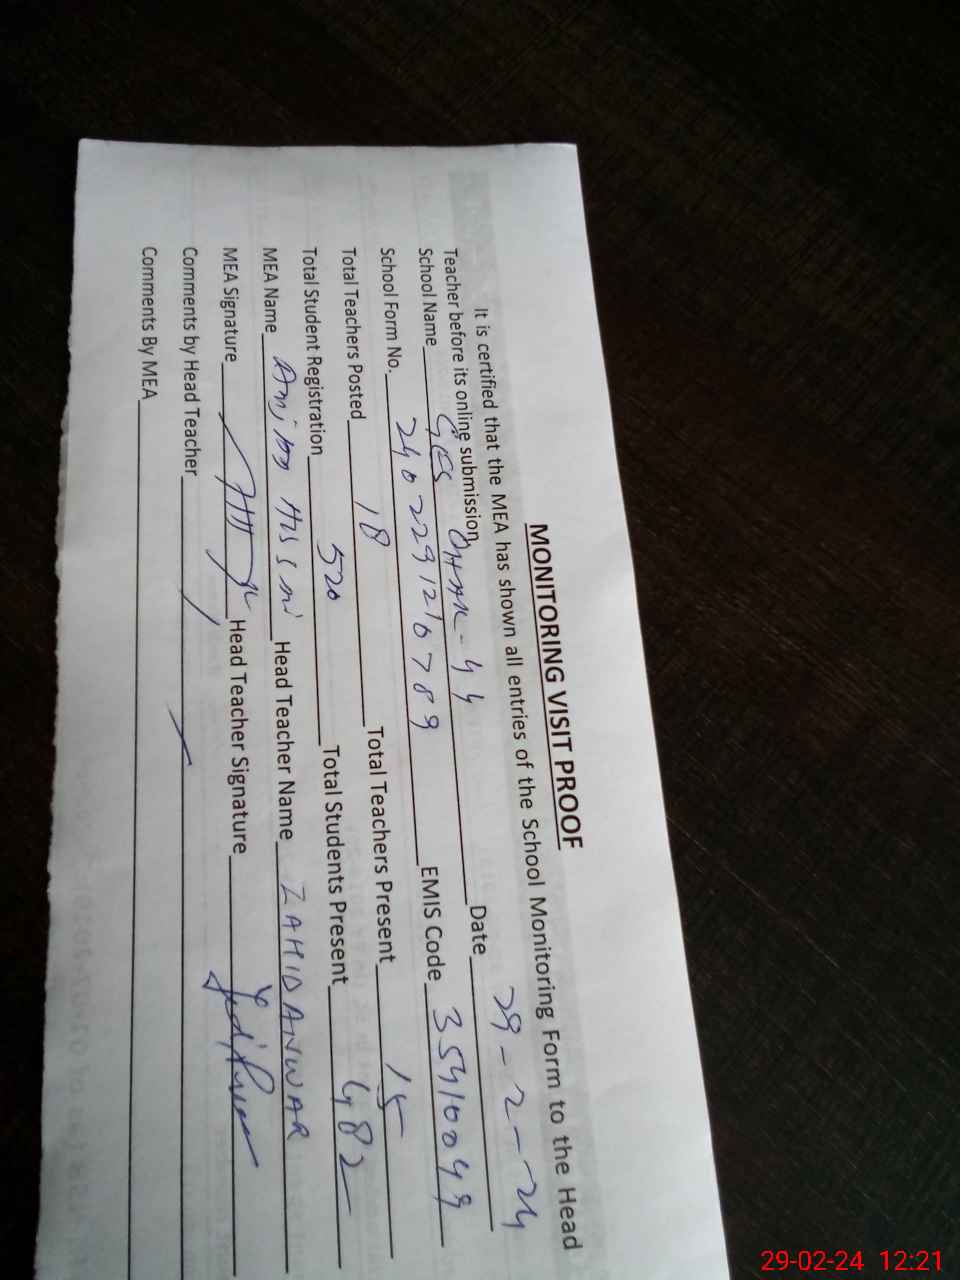 MONITORING VISIT PROOF
It is certified that the MEA has shown all entries of the School Monitoring Form to the Head
Teacher before its online submission.
School Name GES - 44 Date 29-2-24
School Form No. 2402291210789 EMIS Code 35410049
Total Teachers Posted 18 Total Teachers Present 15
Total Student Registration 520 Total Students Present 482
MEA Name Head Teacher Name ZAHID ANWAR
MEA Signature Head Teacher Signature
Comments by Head Teacher
Comments By MEA
29-02-24 12:21